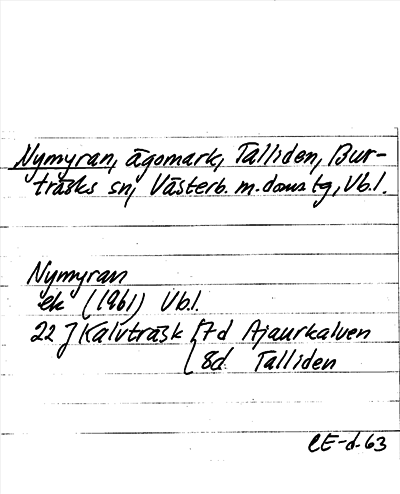 Nymyran, ägomark, Talliden, Bur-
träsks sn, Västerb. m. doms tg, Vb.l.
Nymyran
ek (1961) Vb.l.
22 J Kalvträsk { 7d Ajaurkalven
8d Talliden
CE-d-63